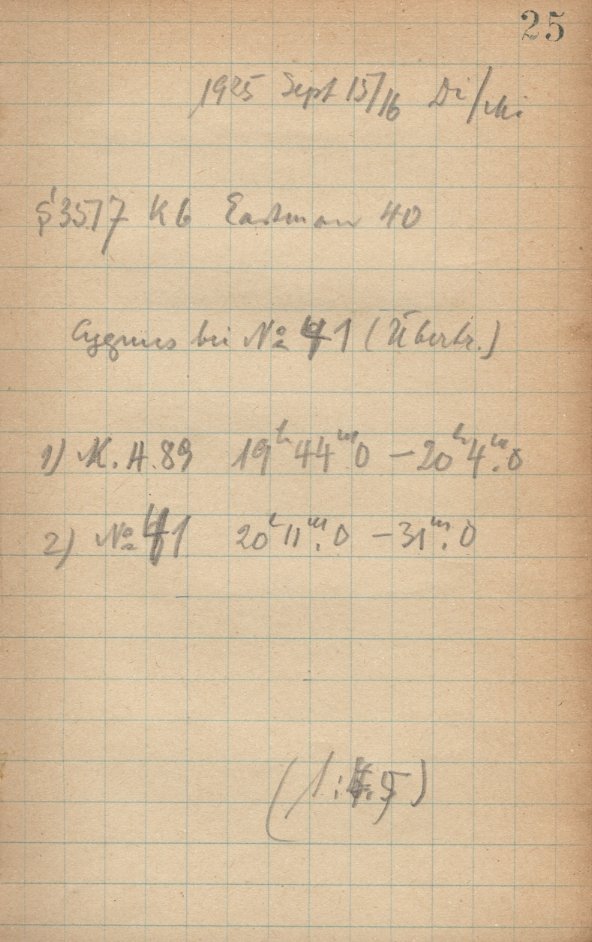 25
1925 Sept 15/16 Di/Mi
3517 Kb Eastman 40
Cygnus bei № 41 (Übertr.)
1) K.A.89 19ʰ44ᵐ.0 – 20ʰ4ᵐ.0
2) № 41 20ʰ11ᵐ.0 – 31ᵐ.0